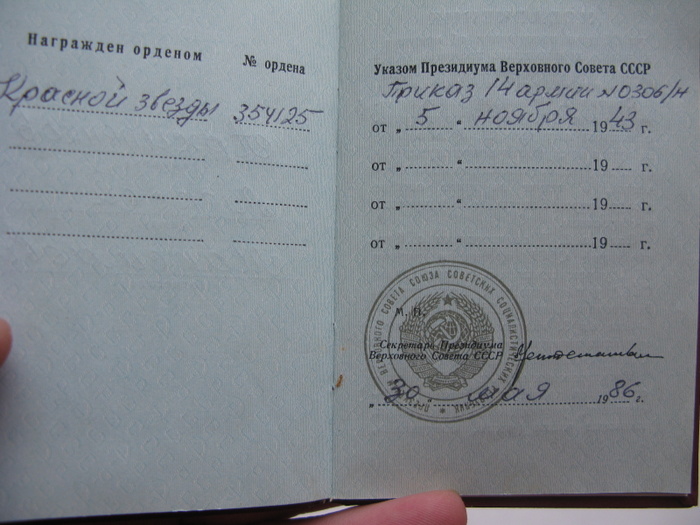 Награжден орденом
№ ордена
Красной звезды 354125
Указом Президиума Верховного Совета СССР
Приказ 14 армии №0306/н
от „ 5 “ ноября 1943 г.
от „ “ 19 г.
от „ “ 19 г.
от „ “ 19 г.
М. П.
Секретарь Президиума
Верховного Совета СССР
„ 30 “ мая 1986 г.
ПРЕЗИДИУМ ВЕРХОВНОГО СОВЕТА СОЮЗА СОВЕТСКИХ СОЦИАЛИСТИЧЕСКИХ